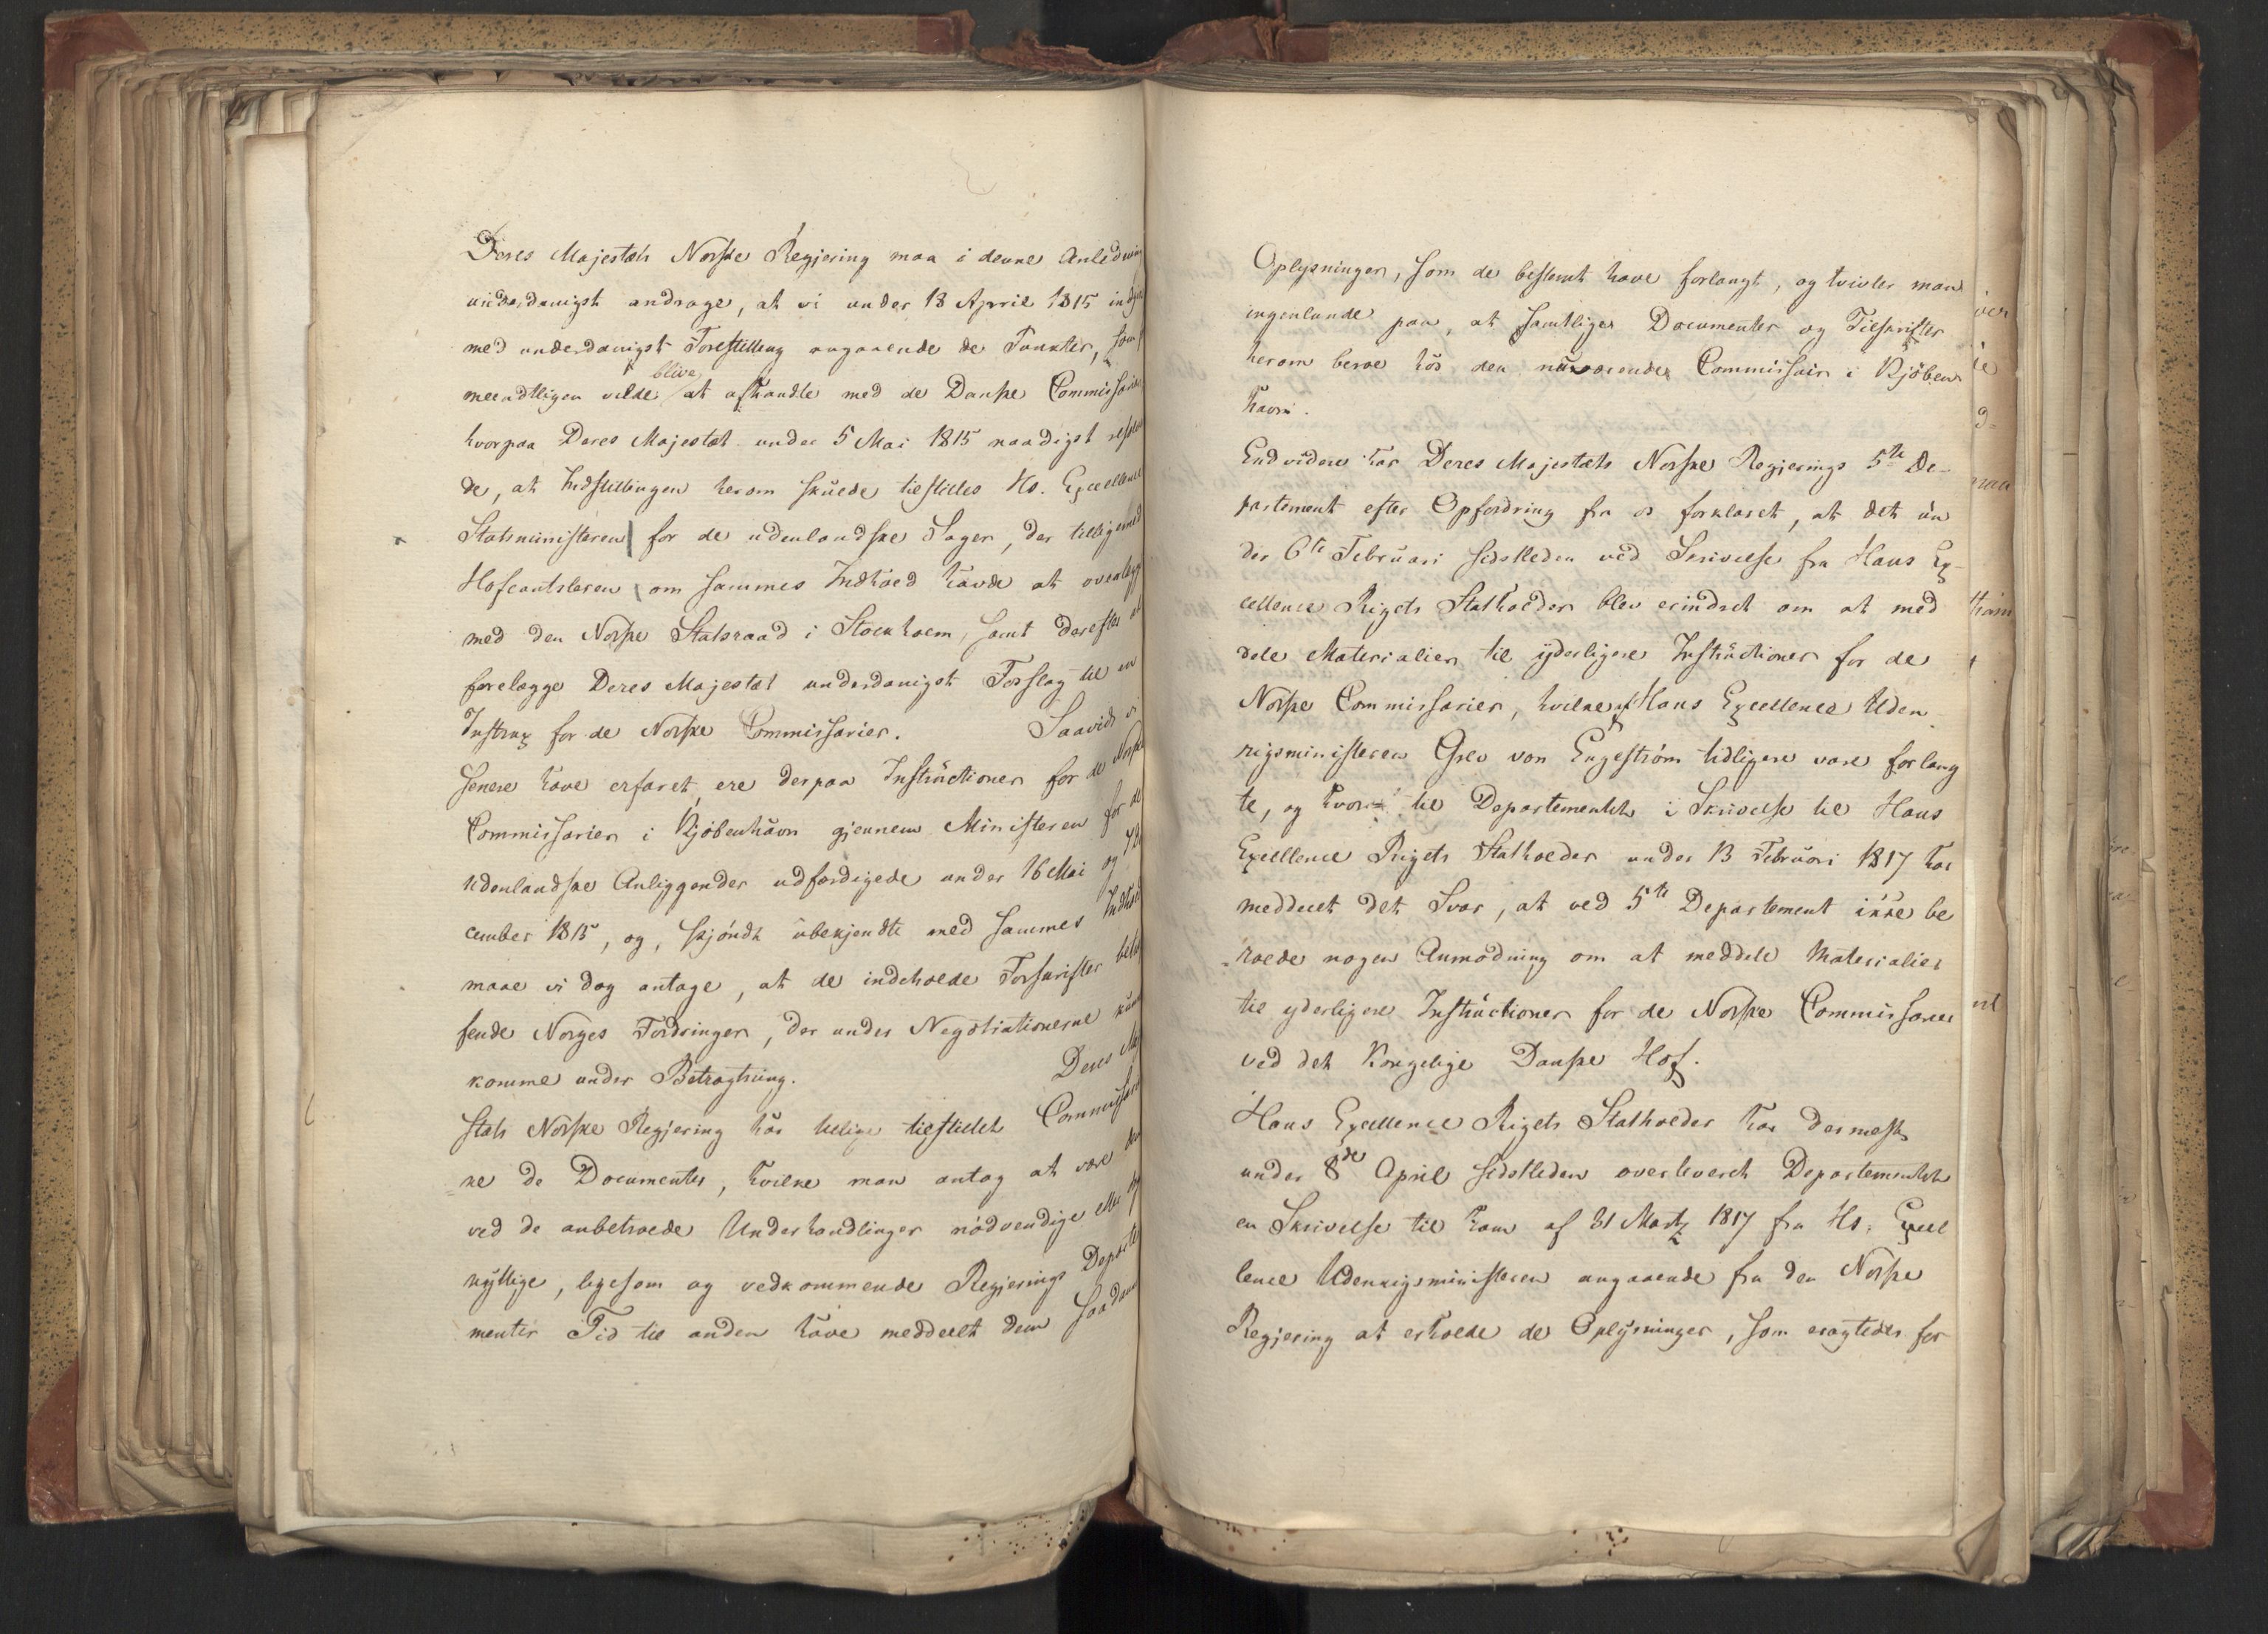 Deres Majestæts Norske Regjering maa i denne Anledning
underdanigst andrage, at vi under 18 April 1815 indgav
med underdanigst Forestilling angaaende de Punkter, som
meendtligen vilde blive at afhandle med de Danske Commissarier
hvorpaa Deres Majestæt under 5 Mai 1815 naadigst resolve
de, at Indstillingen herom skulde tilstilles Hs. Excellence
Statsministeren for de udenlandske Sager, der tilligemed
Hofcantsleren om sammes Indhold havde at overlægge
med den Norske Statsraad i Stockholm, samt derefter at
forelægge Deres Majestæt underdanigst Forslag til en
Instrux for de Norske Commissarier. Saavidt vi
senere have erfaret, ere derpaa Instructioner for de Norske
Commissarier i Kjöbenhavn gjennem Ministeren for de
Udenlandske Anliggender udfærdigede under 16 Mai og
cember 1815, og, skjöndt ubekjendte med sammes Indhold
maae vi dog antage, at de indeholde Forskrifter betræf
fende Norges Fordringer, der under Negotiationerne kunne
komme under Betragtning. Deres Maj
stæts Norske Regjering har tillige tilstillet Commissarier
ne de Documenter, hvilke man antog at være dem
ved de anbetroede Underhandlinger nödvendige eller
nyttige, ligesom og vedkommende Regjerings Departe
menter Tid til anden have meddeelt dem saadanne
Oplysninger, som de bestemt have forlangt, og tvivler man
ingenlunde paa, at samtlige Documenter og Tilskrifter
herom beroe hos den nuværende Commissair i Kjöben
havn.
Endvidere har Deres Majestæts Norske Regjerings 5te De-
partement efter Opfordring fra os forklaret, at det un
der 6te Februari sidstleden ved Skrivelse fra Hans Ex-
cellence Rigets Statholder blev erindret om at med
dele Materialier til yderligere Instructioner for de
Norske Commissarier, hvilke af Hans Excellence Uden
rigsministeren Grev von Engeström tidligere vare forlang
te, og hvor til Departementet i Skrivelse til Hans
Excellence Rigets Statholder under 13 Februari 1817 har
meddeelt det Svar, at ved 5te Departement ikke be
roede nogen Anmodning om at meddele Materialier
til yderligere Instructioner for de Norske Commissarier
ved det Kongelige Danske Hof.
Hans Excellence Rigets Statholder har dernæst
under 8de April sidstleden overleveret Departementet
en Skrivelse til ham af 31 Martz 1817 fra Hs. Excel
lence Udenrigsministeren angaaende fra den Norske
Regjering at erholde de Oplysninger, som eragtedes for